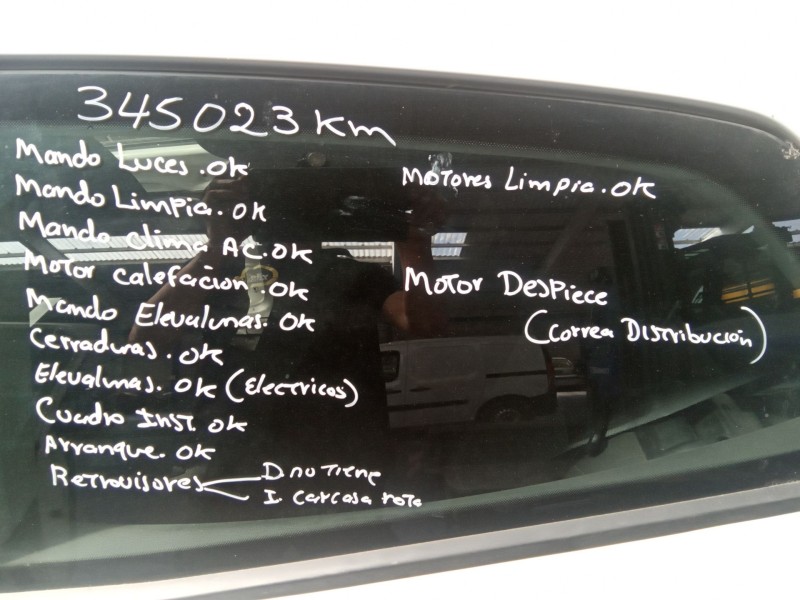 345023 Km
Mando Luces. OK
Mando Limpia. OK
Mando clima AC. OK
Motor calefacion. OK
Mando Elevalunas. OK
Cerraduras. OK
Elevalunas. OK (Electricos)
Cuadro Inst. OK
Arranque. OK
Retrovisores
D no Tiene
I carcasa rota
Motores Limpia. OK
Motor Despiece
(Correa Distribución)